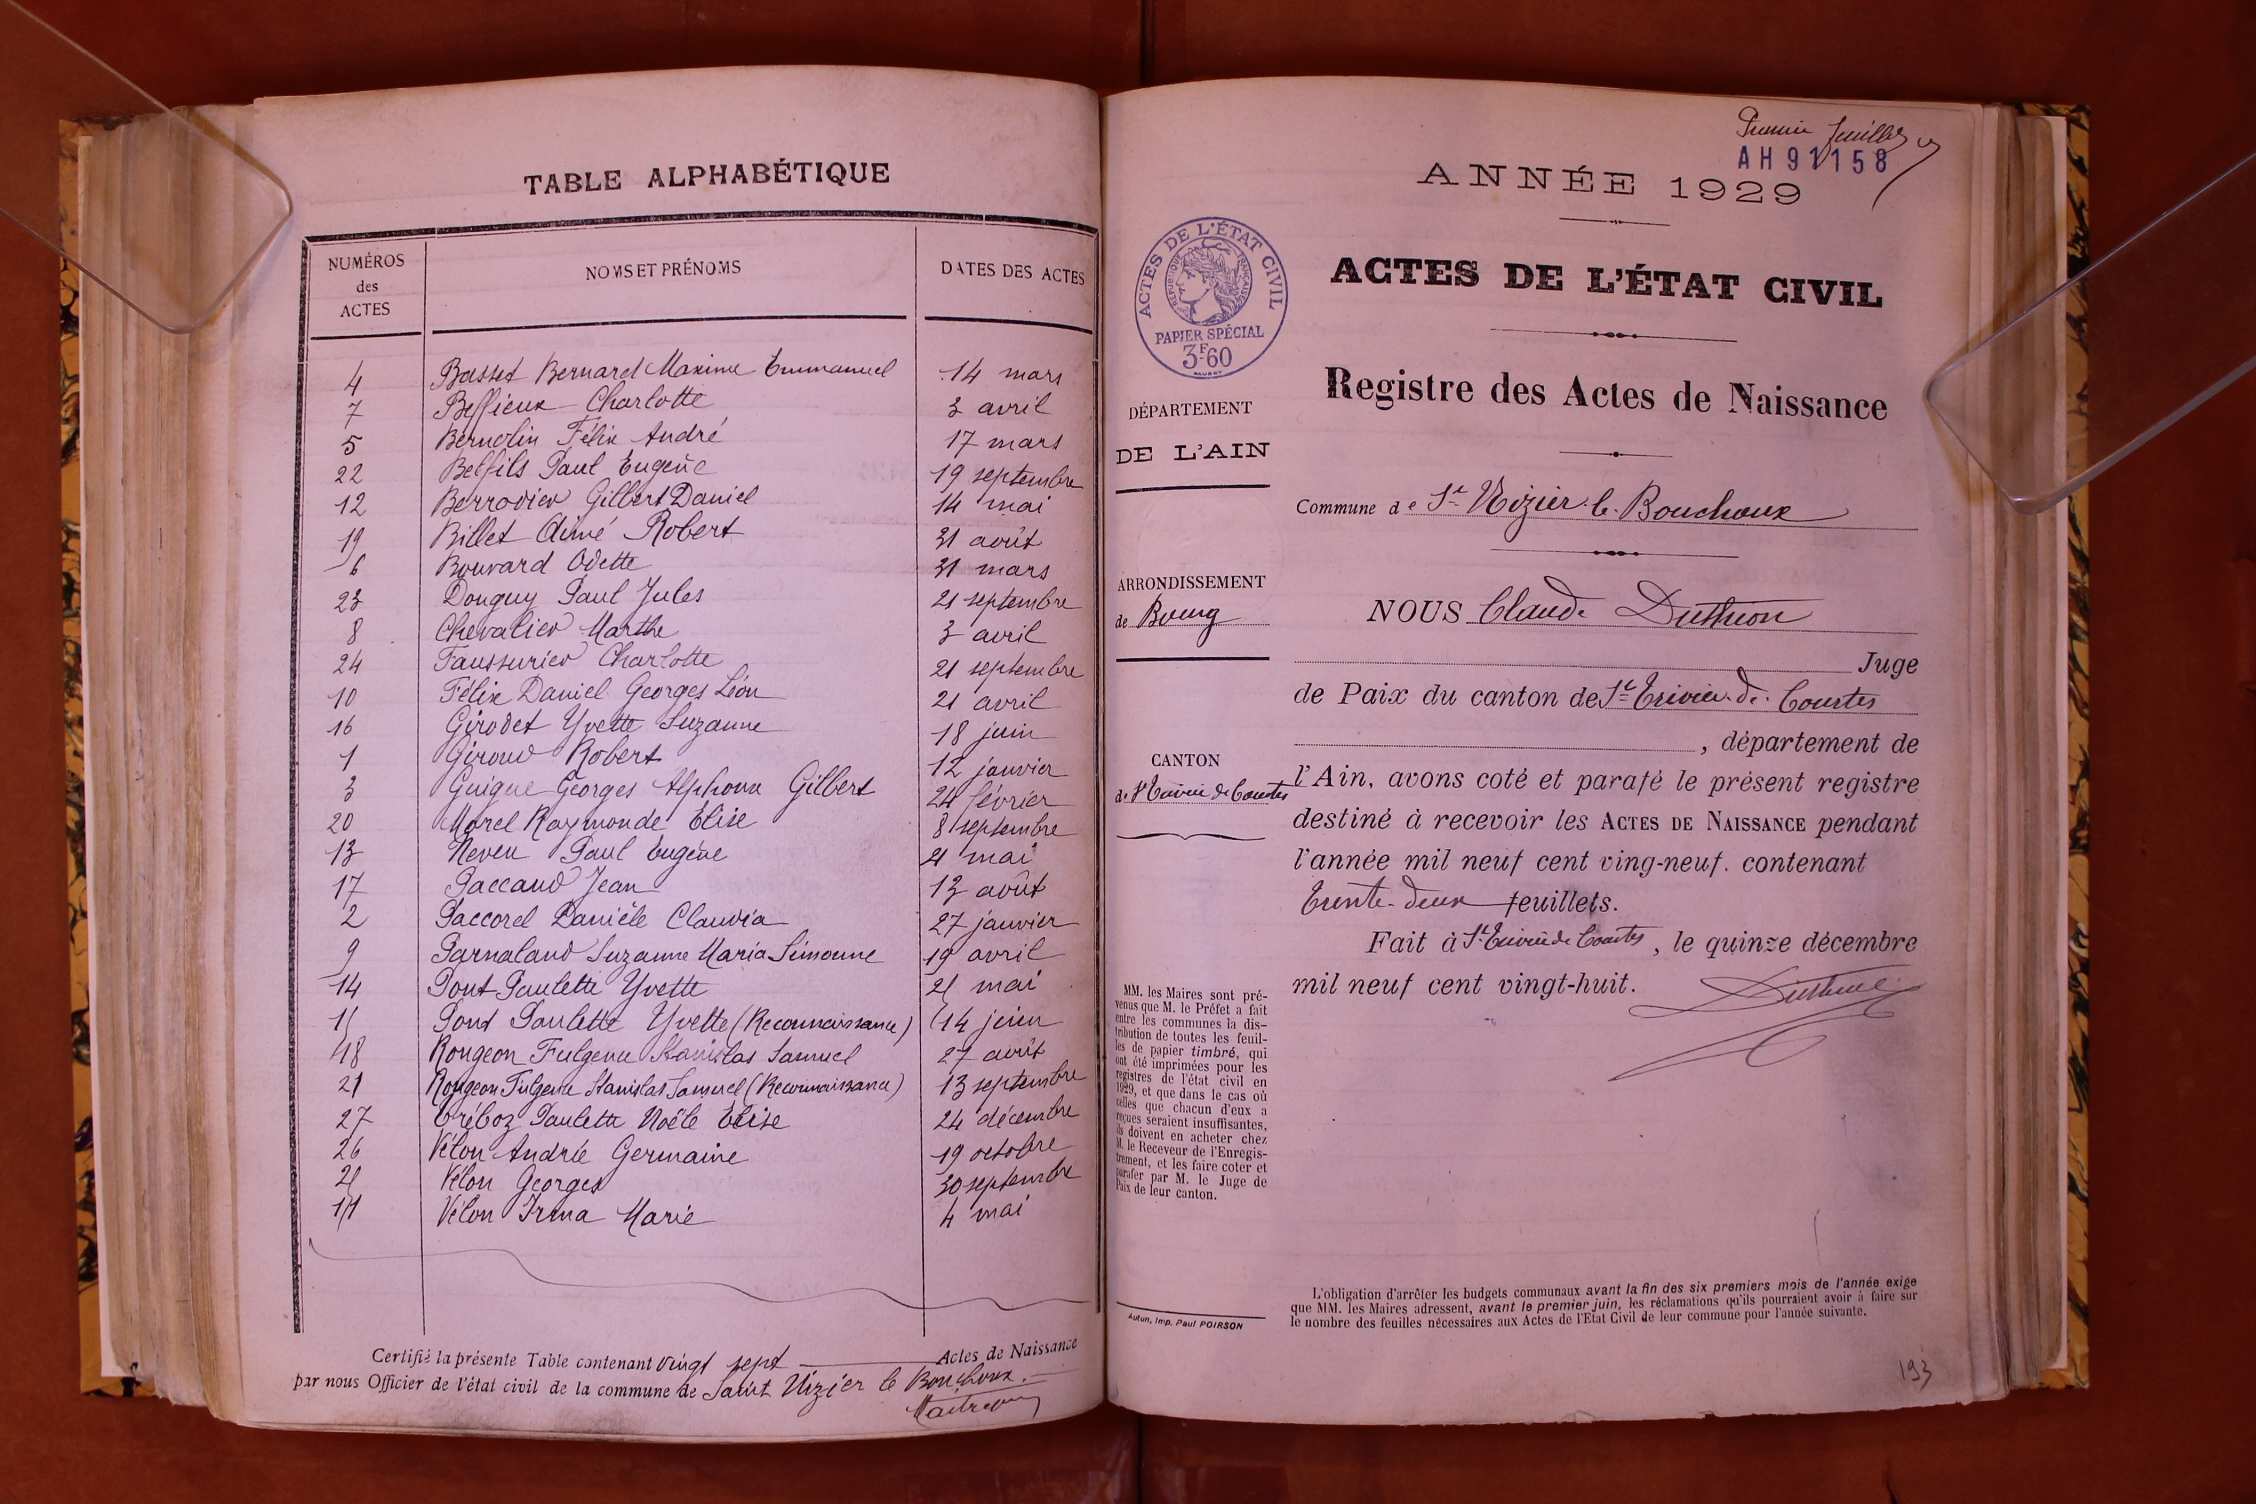 TABLE ALPHABÉTIQUE
NUMÉROS des ACTES NOMS ET PRÉNOMS DATES DES ACTES
4 Basset Bernard Maxime Emmanuel 14 mars
7 Beffieux Charlotte 3 avril
5 Bernolin Félix André 17 mars
22 Belfils Paul Eugène 19 septembre
12 Berrodier Gilbert Daniel 14 mai
19 Billet Aimé Robert 31 août
6 Bouvard Odette 31 mars
23 Donguy Paul Jules 21 septembre
8 Chevalier Marthe 3 avril
24 Faussurier Charlotte 21 septembre
10 Félix Daniel Georges Léon 21 avril
16 Girodet Yvette Suzanne 18 juin
1 Giroud Robert 12 janvier
3 Guigue Georges Alphonse Gilbert 24 février
20 Morel Raymonde Elise 8 septembre
13 Neveu Paul Eugène 21 mai
17 Paccaud Jean 13 août
2 Paccorel Danièle Claudia 27 janvier
9 Parnaland Suzanne Maria Simonne 19 avril
14 Pont Paulette Yvette 21 mai
Pont Paulette Yvette (Reconnaissance) 14 juin
18 Rongeon Fulgence Stanislas Samuel 27 août
21 Rongeon Fulgence Stanislas Samuel (Reconnaissance) 13 septembre
27 Tréboz Paulette Noële Elise 24 décembre
26 Vélon Andrée Germaine 19 octobre
Vélon Georges 30 septembre
11 Vélon Irma Marie 4 mai
Certifié la présente Table contenant vingt sept Actes de Naissance
par nous Officier de l'état civil de la commune de Saint Nizier le Bouchoux.
Premier feuillet
AH 91158
ANNÉE 1929
ACTES DE L'ÉTAT CIVIL
RÉPUBLIQUE FRANÇAISE
PAPIER SPÉCIAL
3F60
ACTES DE L'ÉTAT CIVIL
Registre des Actes de Naissance
DÉPARTEMENT
DE L'AIN
Commune de St Nizier-le-Bouchoux
ARRONDISSEMENT
de Bourg
CANTON
de St Trivier de Courtes
NOUS Claude Duthion
Juge
de Paix du canton de St Trivier-de-Courtes
, département de
l'Ain, avons coté et parafé le présent registre
destiné à recevoir les ACTES DE NAISSANCE pendant
l'année mil neuf cent ving-neuf. contenant
Trente-deux feuillets.
Fait à St Trivier de Courtes, le quinze décembre
mil neuf cent vingt-huit.
MM. les Maires sont pré-
venus que M. le Préfet a fait
entre les communes la dis-
tribution de toutes les feuil-
les de papier timbré, qui
ont été imprimées pour les
registres de l'état civil en
1929, et que dans le cas où
celles que chacun d'eux a
reçues seraient insuffisantes,
ils doivent en acheter chez
M. le Receveur de l'Enregis-
trement, et les faire coter et
parafer par M. le Juge de
Paix de leur canton.
Autun, Imp. Paul POIRSON
L'obligation d'arrêter les budgets communaux avant la fin des six premiers mois de l'année exige
que MM. les Maires adressent, avant le premier juin, les réclamations qu'ils pourraient avoir à faire sur
le nombre des feuilles nécessaires aux Actes de l'Etat Civil de leur commune pour l'année suivante.
193